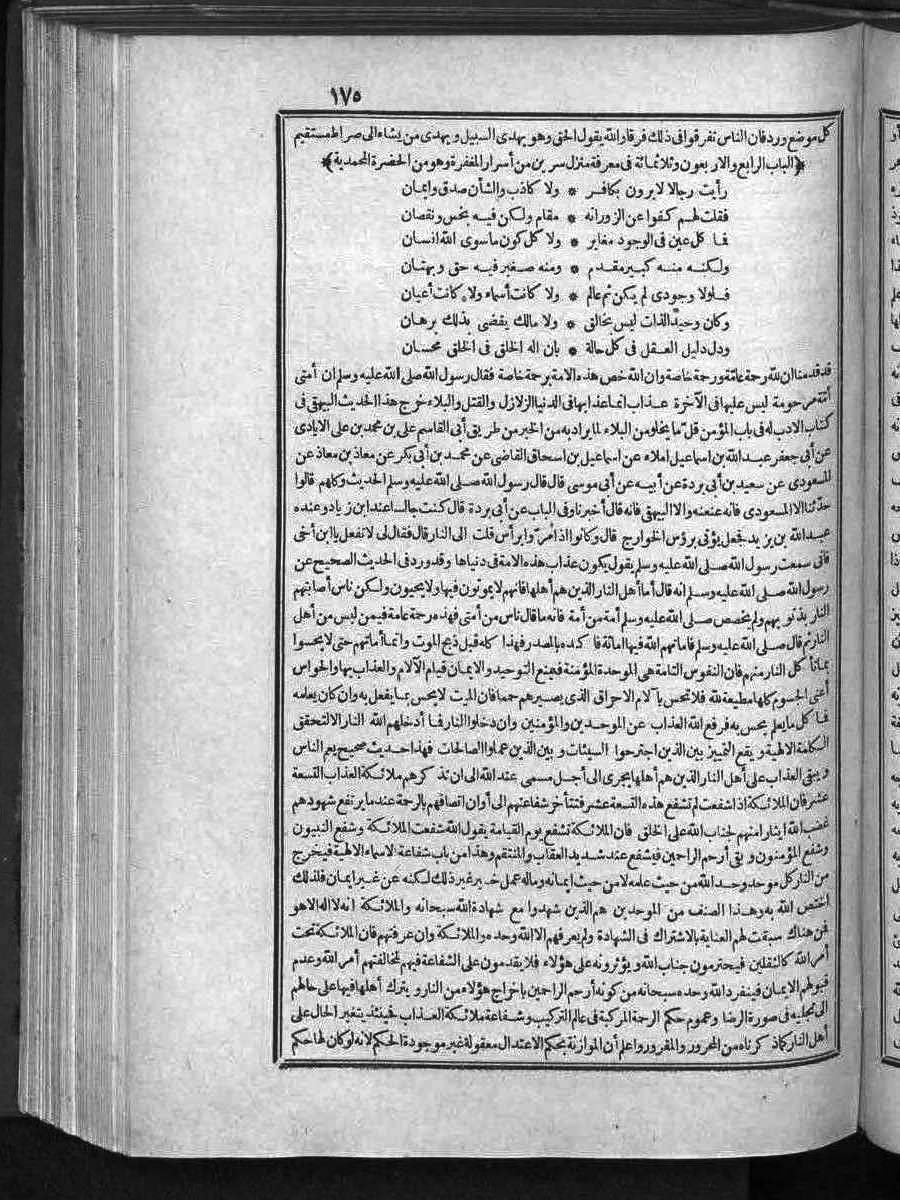 ١٧٥
كل موضع ورد فان الناس تفرقوا فى ذلك فرقا والله يقول الحق وهو يهدى السبيل ويهدى من يشاء الى صراط مستقيم
﴿الباب الرابع والاربعون وثلاثمائة فى معرفة منزل سرين من أسرار المغفرة وهو من الحضرة المحمدية﴾
رأيت رجالا لا يرون بكافر * ولا كاذب والشأن صدق وايمان
فقلت لهم كفوا عن الزور انه * مقام ولكن فيه بخس ونقصان
فما كل عين فى الوجود مغاير * ولا كل كون ماسوى الله انسان
ولكنه منه كبير مقدم * ومنه صغير فيه حق وبهتان
فلولا وجودى لم يكن ثم عالم * ولا كانت أسماء ولا كانت أعيان
وكان وحيد الذات ليس بخالق * ولا مالك يقضى بذلك برهان
ودل دليل العقل فى كل حالة * بان اله الخلق فى الخلق محسان
قد قدمنا ان لله رحمة عامة ورحمة خاصة وان الله خص هذه الامة برحمة خاصة فقال رسول الله صلى الله عليه وسلم ان أمتى
أمة مرحومة ليس عليها فى الآخرة عذاب انما عذابها فى الدنيا الزلازل والقتل والبلاء خرج هذا الحديث البيهقى فى
كتاب الادب له فى باب المؤمن قل ما يخلو من البلاء لما يراد به من الخير من طريق أبى القاسم على بن محمد بن على الايادى
عن أبى جعفر عبد الله بن اسماعيل املاء عن اسماعيل بن اسحاق القاضى عن محمد بن أبى بكر عن معاذ بن معاذ عن
المسعودى عن سعيد بن أبى بردة عن أبيه عن أبى موسى قال قال رسول الله صلى الله عليه وسلم الحديث وكلهم قالوا
حدثنا الا المسعودى فانه عنعنه والا البيهقى فانه قال أخبرنا وفى الباب عن أبى بردة قال كنت جالسا عند ابن زياد وعنده
عبد الله بن يزيد فجعل يؤتى برؤس الخوارج قال وكانوا اذا مروا برأس قلت الى النار قال فقال لى لا تفعل يا ابن أخى
فانى سمعت رسول الله صلى الله عليه وسلم يقول يكون عذاب هذه الامة فى دنياها وقد ورد فى الحديث الصحيح عن
رسول الله صلى الله عليه وسلم انه قال أما أهل النار الذين هم أهلها فانهم لا يموتون فيها ولا يحيون ولكن ناس أصابتهم
النار بذنوبهم ولم يخصص صلى الله عليه وسلم أمة من أمة فانه ما قال ناس من أمتى فهذه رحمة عامة فيمن ليس من أهل
النار ثم قال صلى الله عليه وسلم فاماتهم الله فيها اماتة فاكده بالمصدر فهذا كله قبل ذبح الموت وانما أماتهم حتى لا يحسوا
بما تأكل النار منهم فان النفوس التامة هى الموحدة المؤمنة فيمنع التوحيد والايمان قيام الآلام والعذاب بها والحواس
أعنى الجسوم كلها مطيعة لله فلا تحس بآلام الاحراق الذى يصيرهم حمما فان الميت لا يحس بما يفعل به وان كان يعلمه
فما كل ما يعلم يحس به فرفع الله العذاب عن الموحدين والمؤمنين وان دخلوا النار فما أدخلهم الله النار الا لتحقق
الكلمة الالهية ويقع التمييز بين الذين اجترحوا السيئات وبين الذين عملوا الصالحات فهذا حديث صحيح يعم الناس
ويبقى العذاب على أهل النار الذين هم أهلها يجرى الى أجل مسمى عند الله الى ان تذكرهم ملائكة العذاب التسعة
عشر فان الملائكة اذا شفعت لم تشفع هذه التسعة عشر فتتأخر شفاعتهم الى أوان اتصافهم بالرحمة عند ما يرتفع شهودهم
غضب الله ايثارا منهم لجناب الله على الخلق فان الملائكة تشفع يوم القيامة يقول الله شفعت الملائكة وشفع النبيون
وشفع المؤمنون وبقى أرحم الراحمين فيشفع عند شديد العقاب والمنتقم وهذا من باب شفاعة الاسماء الالهية فيخرج
من النار كل موحد وحد الله من حيث علمه لا من حيث ايمانه وماله عمل خير غير ذلك لكنه عن غير ايمان فلذلك
اختص الله به وهذا الصنف من الموحدين هم الذين شهدوا مع شهادة الله سبحانه والملائكة انه لا اله الا هو
فمن هناك سبقت لهم العناية بالاشتراك فى الشهادة ولم يعرفهم الا الله وحده والملائكة وان عرفتهم فان الملائكة تحت
أمر الله كالثقلين فيحترمون جناب الله ويؤثرونه على هؤلاء فلا يقدمون على الشفاعة فيهم لمخالفتهم أمر الله وعدم
قبولهم الايمان فينفرد الله وحده سبحانه من كونه أرحم الراحمين باخراج هؤلاء من النار ويترك أهلها فيها على حالهم
الى تجليه فى صورة الرضا وعموم حكم الرحمة المركبة فى عالم التركيب وشفاعة ملائكة العذاب فحينئذ يتغير الحال على
أهل النار كما ذكرناه من المحرور والمقرور واعلم أن الموازنة بحكم الاعتدال معقولة غير موجودة الحكم لانه لو كان لها حكم